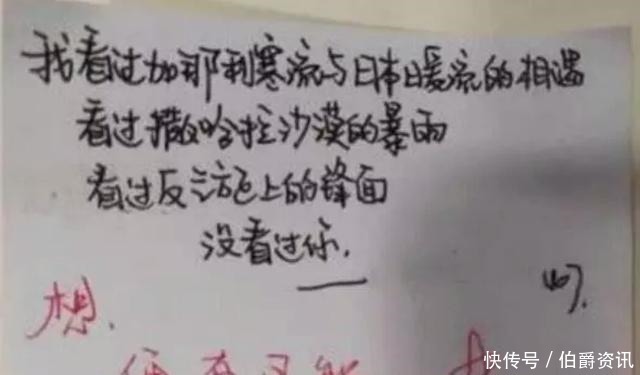 我看过加那利寒流与日本暖流的相遇
看过撒哈拉沙漠的暴雨
看过反气旋上的锋面
没看过你.
想.
快传号/伯爵资讯